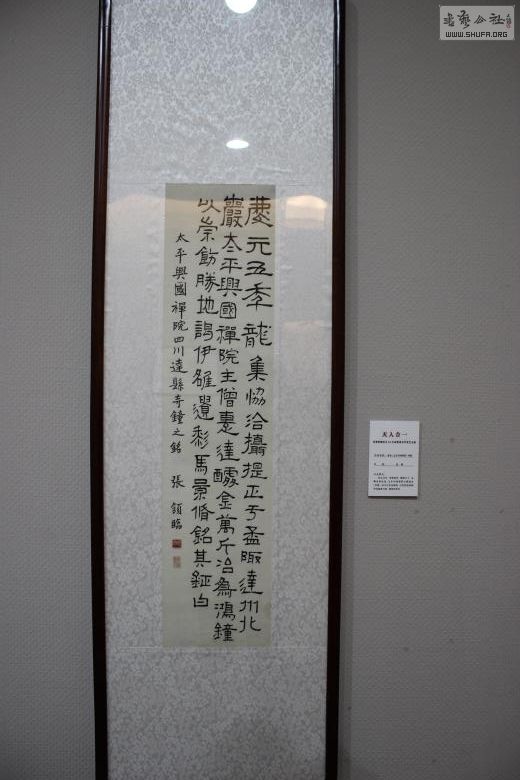 慶元五年龍集協洽攝提正于孟陬達州北
巖太平興國禪院主僧惠達醵金萬斤冶為鴻鐘
以崇飾勝地謁伊雒馬景脩銘其鉦曰
太平興國禪院四川達縣寺鐘之銘 張頷臨
天人合一
書藝公社
WWW.SHUFA.ORG